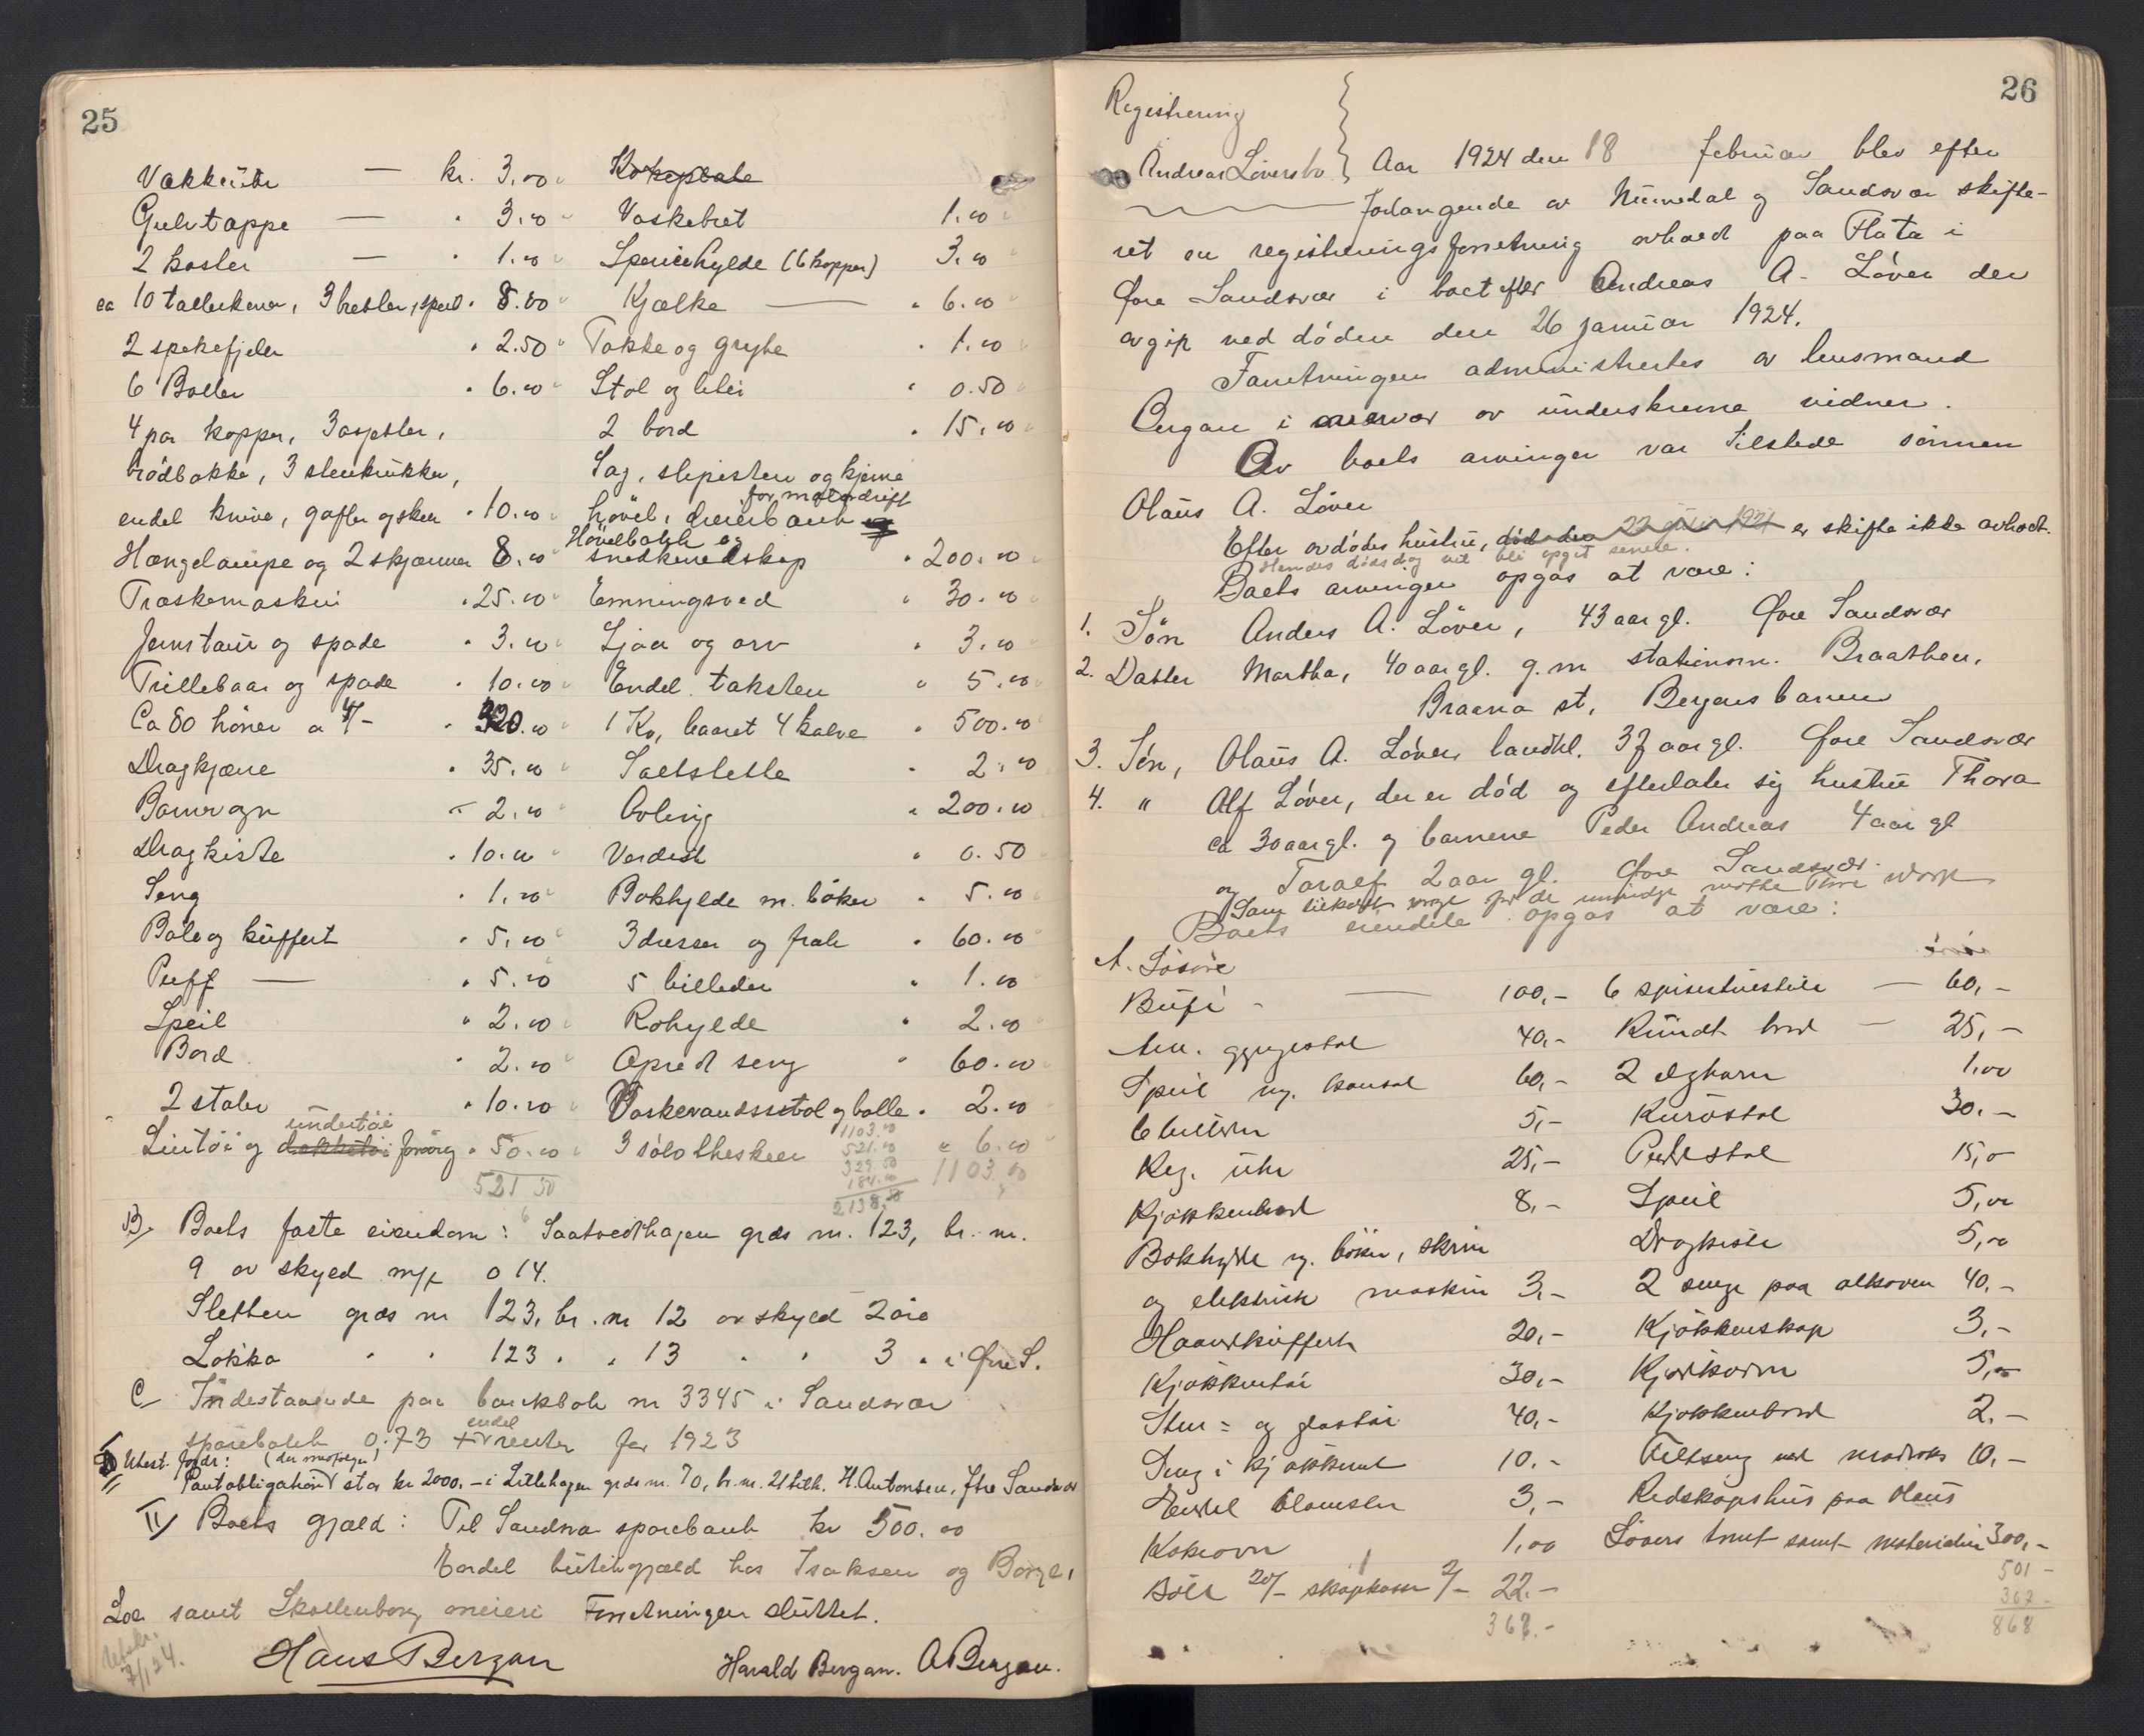 25
Vækkeuhr — kr. 3.00
Gulvtæppe — " 3.00
2 koster — " 1.00
ca 10 tallerkener, 3 bretter, speil " 8.00
2 spekefjeler " 2.50
6 Boller " 6.00
4 par kopper, 3 asjetter,
brödbakke, 3 stenkrukker,
endel knive, gafler og skeer " 10.00
Hængelampe og 2 skjærmer 8.00
Træskemaskin " 25.00
Jernstaur og spade " 3.00
Trillebaar og spade " 10.00
Ca 80 höner a 4/- " 320.00
Dragkjærre " 35.00
Barnevogn " 2.00
Dragkiste " 10.00
Seng " 1.00
Bale og kuffert " 5.00
Puff — " 5.00
Speil " 2.00
Bord " 2.00
2 stoler " 10.00
undertöi
Lintöi og dækketöi forövrig " 50.00
521 50
Kokeplate
Vaskebret 1.00
Spericehylde (6 kopper) 3.00
Kjælke — " 6.00
Takke og gryte " 1.00
Stol og " 0.50
2 bord " 15.00
Sag, slipesten og kjerne
for motordrift
hövel, dreierbænk og
Hövelbænk og
snedkerredskap " 200.00
Emningsved " 30.00
Ljaa og orv " 3.00
Endel taksten " 5.00
1 Ko, baaret 4 kalve " 500.00
Saltslette " 2.00
Avling " 200.00
Verdist " 0.50
Bokhylde m. böker " 5.00
3 dresser og frak " 60.00
5 billeder " 1.00
Rohylde " 2.00
Opredt seng " 60.00
Vaskevandsstol og bolle " 2.00
3 sölvtheskeer " 6.00
1103.00
521.50
329.50
184.00
2138.00
1103.00
B/ Boets faste eiendom: Saatvedthagen grds nr. 123, br. nr.
9 av skyld m/k 0 14.
Sletten grds nr 123, br. nr 12 av skyld 2 öre
Løkka " " 123 " " 13 " " 3 " i Øvre S.
C/ Indestaaende paa bankbok nr 3345 i Sandsvær
sparebank 0,73 + endel renter for 1923
D Utest. fordr: (der medfölger)
Pantobligation stor kr 2000.- i Lillehagen grds nr. 70, br. nr. 21 tilh. H. Antonsen, Ytre Sandsvær
II/ Boets gjæld: Til Sandsvær sparebank kr 500.00
Endel butikgjæld hos Isaksen og Borge,
Loe samt Skollenborg meieri Forretningen sluttet.
Utskr.
7/1 24.
Hans Bergan Harald Bergan. A Bergan.
26
Registrering
Andreas Löversbo } Aar 1924 den 18 februar blev efter
forlangende av Numedal og Sandsvær skifte-
ret en registreringsforretning avholdt paa Flata i
Øvre Sandsvær i boet efter Andreas A. Löver der
avgik ved döden den 26 januar 1924.
Forretningen administrertes av lensmand
Bergan i overvær av underskrevne vidner.
Av boets arvinger var tilstede sönnen
Olaus A. Löver
Efter avdödes hustru, död den 22 juni 1921 er skifte ikke avholdt.
Hendes dödsdag vil bli opgit senere.
Boets arvinger opgas at være:
1. Sön Anders A. Löver, 43 aar gl. Øvre Sandsvær
2. Datter Martha, 40 aar gl. g. m stationsm. Braathen,
Braana st, Bergensbanen
3. Sön, Olaus A. Löver, landhl. 37 aar gl. Øvre Sandsvær
4. " Alf Löver, der er död og efterlater sig hustru Thora
ca 30 aar gl. og barnene Peder Andreas 4 aar gl
og Toralf 2 aar gl. Øvre Sandsvær.
Som tilsat verge for de umyndige
Boets eiendele opgas at være:
A. Lösöre
Bufé — 100,-
Am. gyngestol 40,-
Speil m. konsol 60,-
6 billeder 5,-
Reg. uhr 25,-
Kjökkenbord 8,-
Bokhylde m. böker, skrin
og elektrisk maskin 3,-
Haandkuffert 20,-
Kjökkentöi 30,-
Sten- og glastöi 40,-
Seng i kjökkenet 10.-
Endel blomster 3,-
Kokeovn 1,00
Böll 20/- skapkasse 2/- 22.-
368.-
6 spisestuestole — 60,-
Rundt bord — 25,-
2 elghorn 1.00
Kurvstol 30.-
Pedestal 15,0
Speil 5,00
Dragkiste 5,00
2 senge paa alkoven 40,-
Kjökkenskap 3,-
Kjedkorn 5,00
Kjökkenbord 2.-
Feltseng med madrass 10,-
Redskapshus paa Olaus
Lövers tomt samt materialier 300,-
501 -
367 -
868